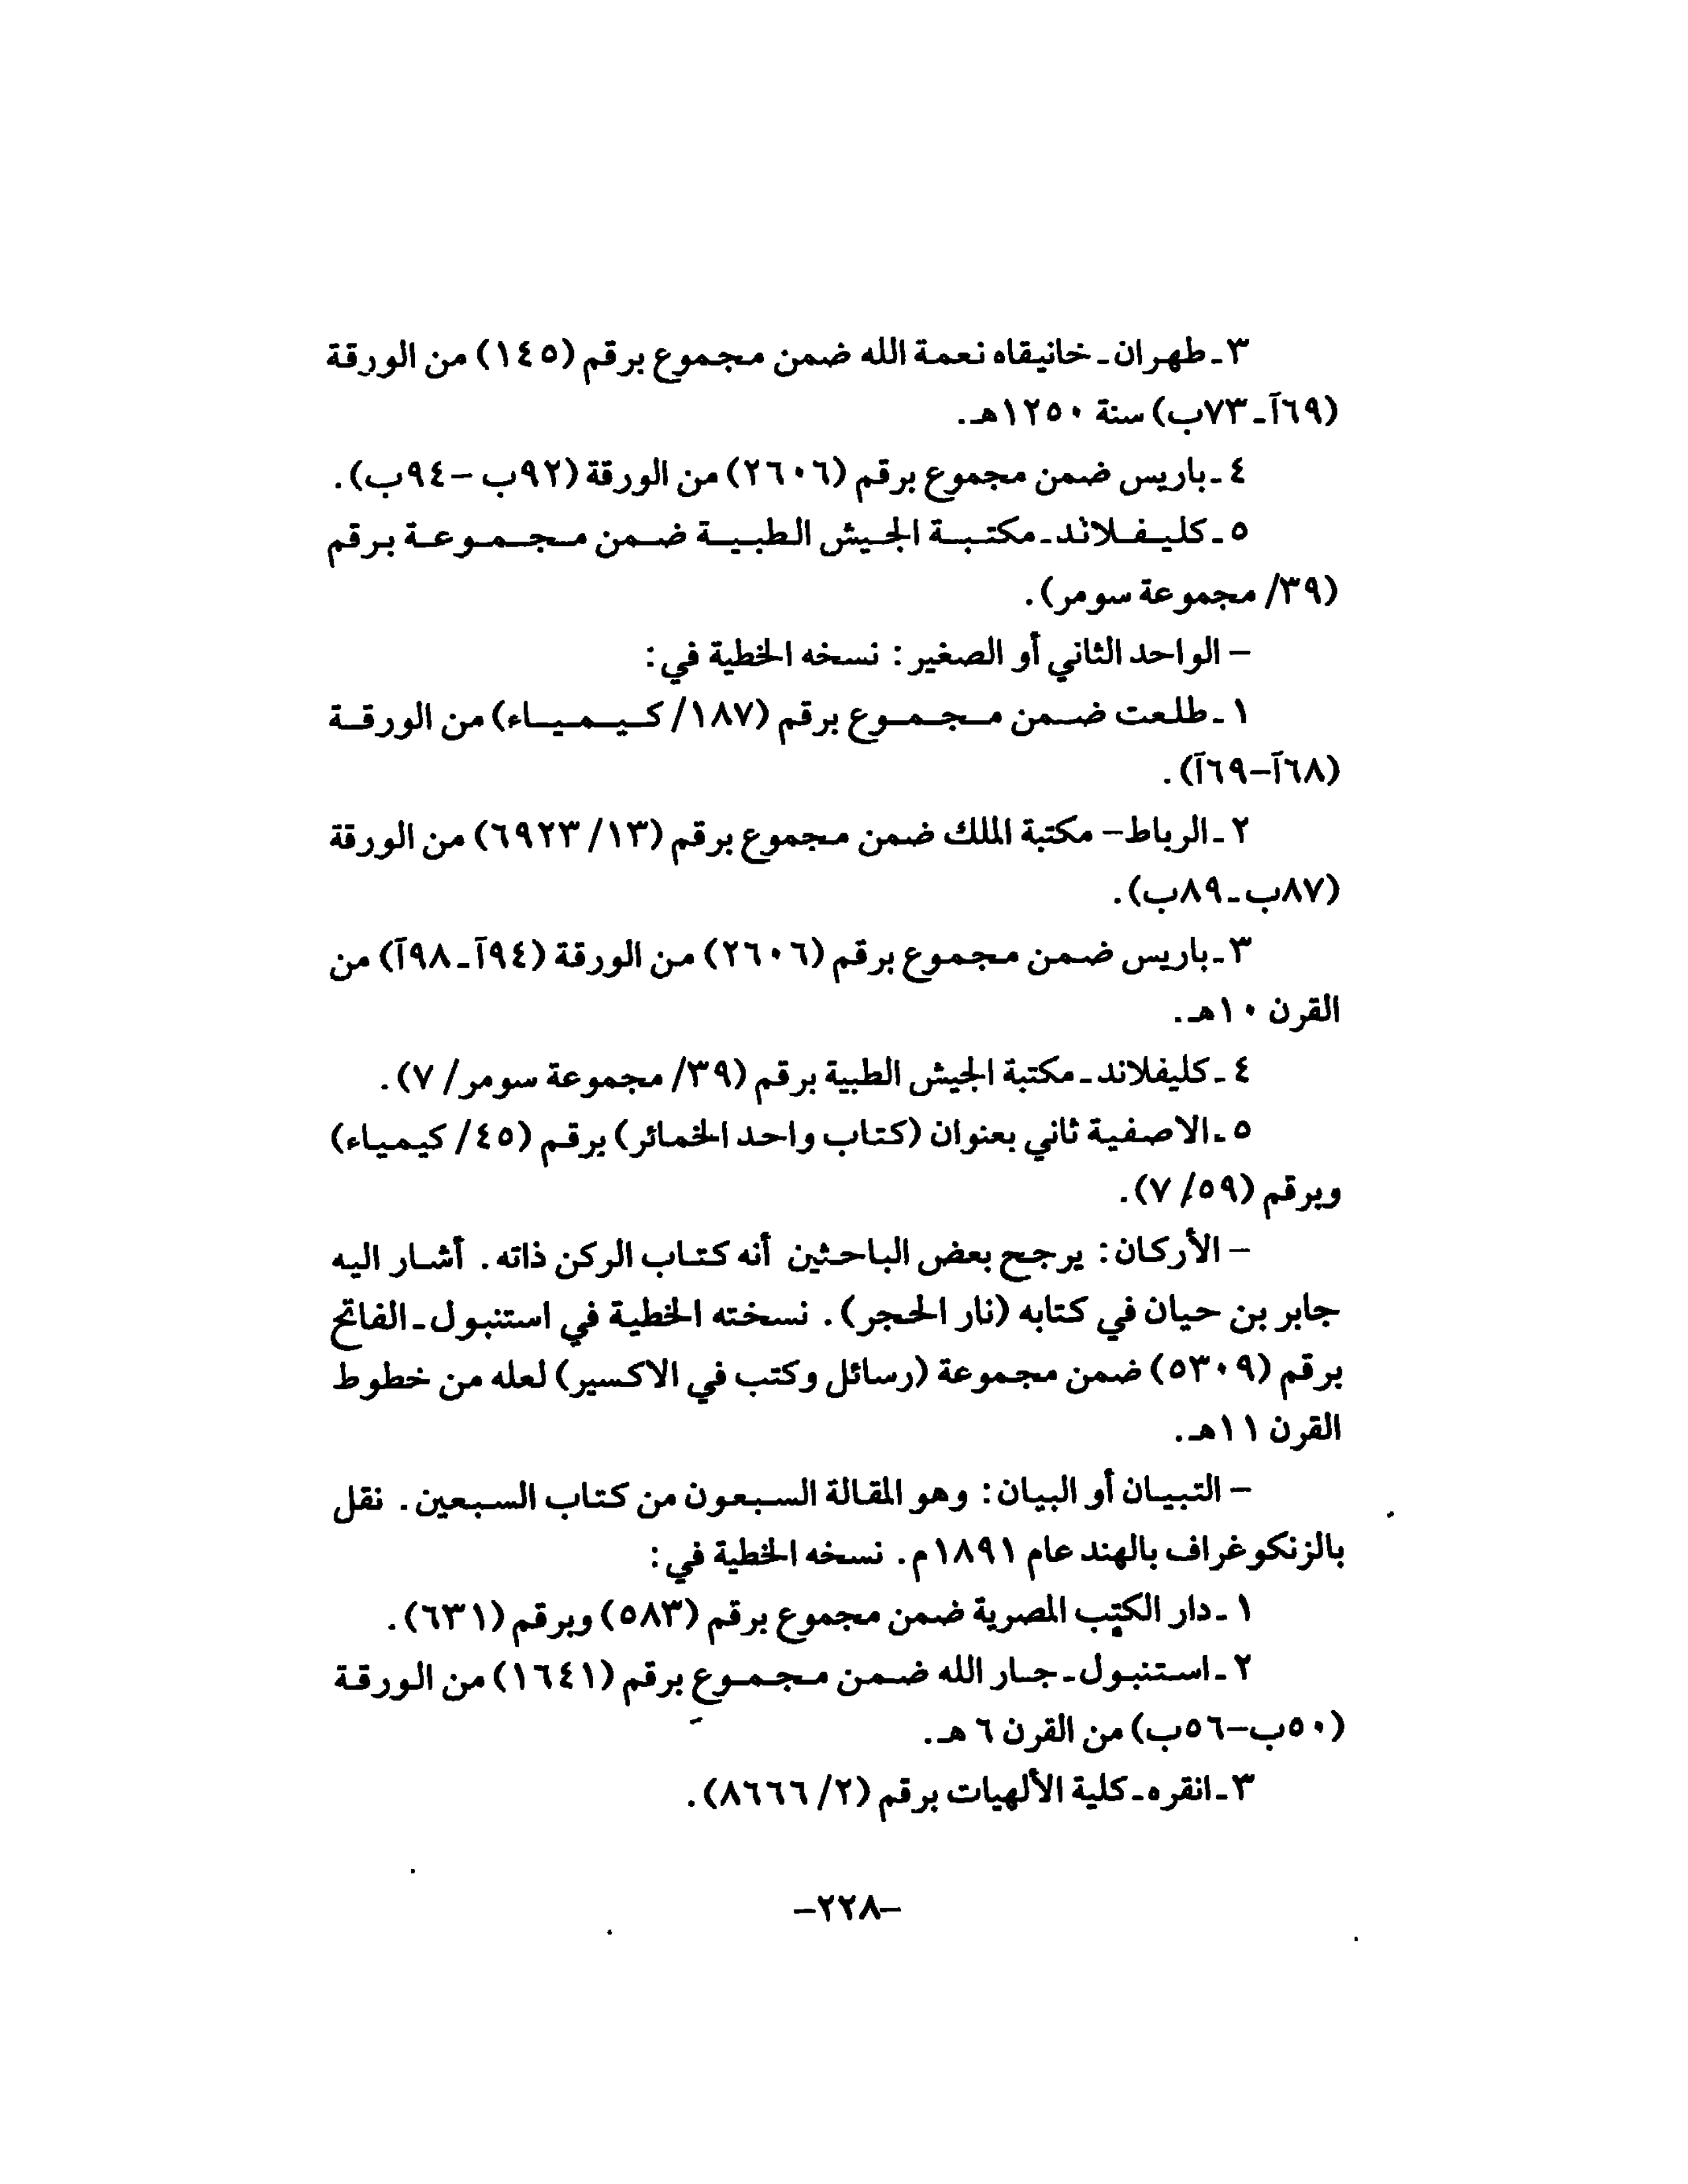 ٣ـ طهران ـ خانيقاه نعمة الله ضمن مجموع برقم (١٤٥) من الورقة
(٦٩آـ ٧٣ب) سنة ١٢٥٠هـ.
٤ ـ باريس ضمن مجموع برقم (٢٦٠٦) من الورقة (٩٢ب – ٩٤ب).
٥ ـ كليفلاند ـ مكتبة الجيش الطبية ضمن مجموعة برقم
(٣٩/ مجموعة سومر).
– الواحد الثاني أو الصغير: نسخه الخطية في:
١ ـ طلعت ضمن مجموع برقم (١٨٧/ كيمياء) من الورقة
(٦٨آ–٦٩آ).
٢ ـ الرباط– مكتبة الملك ضمن مجموع برقم (١٣/ ٦٩٢٣) من الورقة
(٨٧ب ـ ٨٩ب).
٣ ـ باريس ضمن مجموع برقم (٢٦٠٦) من الورقة (٩٤آـ ٩٨آ) من
القرن ١٠هـ.
٤ ـ كليفلاند ـ مكتبة الجيش الطبية برقم (٣٩/ مجموعة سومر/ ٧).
٥ ـ الاصفية ثاني بعنوان (كتاب واحد الخمائر) برقم (٤٥/ كيمياء)
وبرقم (٥٩/ ٧).
– الأركان: يرجح بعض الباحثين أنه كتاب الركن ذاته. أشار اليه
جابر بن حيان في كتابه (نار الحجر). نسخته الخطية في استنبول ـ الفاتح
برقم (٥٣٠٩) ضمن مجموعة (رسائل وكتب في الاكسير) لعله من خطوط
القرن ١١هـ.
– التبيان أو البيان: وهو المقالة السبعون من كتاب السبعين. نقل
بالزنكوغراف بالهند عام ١٨٩١م. نسخه الخطية في:
١ ـ دار الكتب المصرية ضمن مجموع برقم (٥٨٣) وبرقم (٦٣١).
٢ ـ استنبول ـ جار الله ضمن مجموع برقم (١٦٤١) من الورقة
(٥٠ب–٥٦ب) من القرن ٦ هـ.
٣ ـ انقره ـ كلية الألهيات برقم (٢/ ٨٦٦٦).
–٢٢٨–